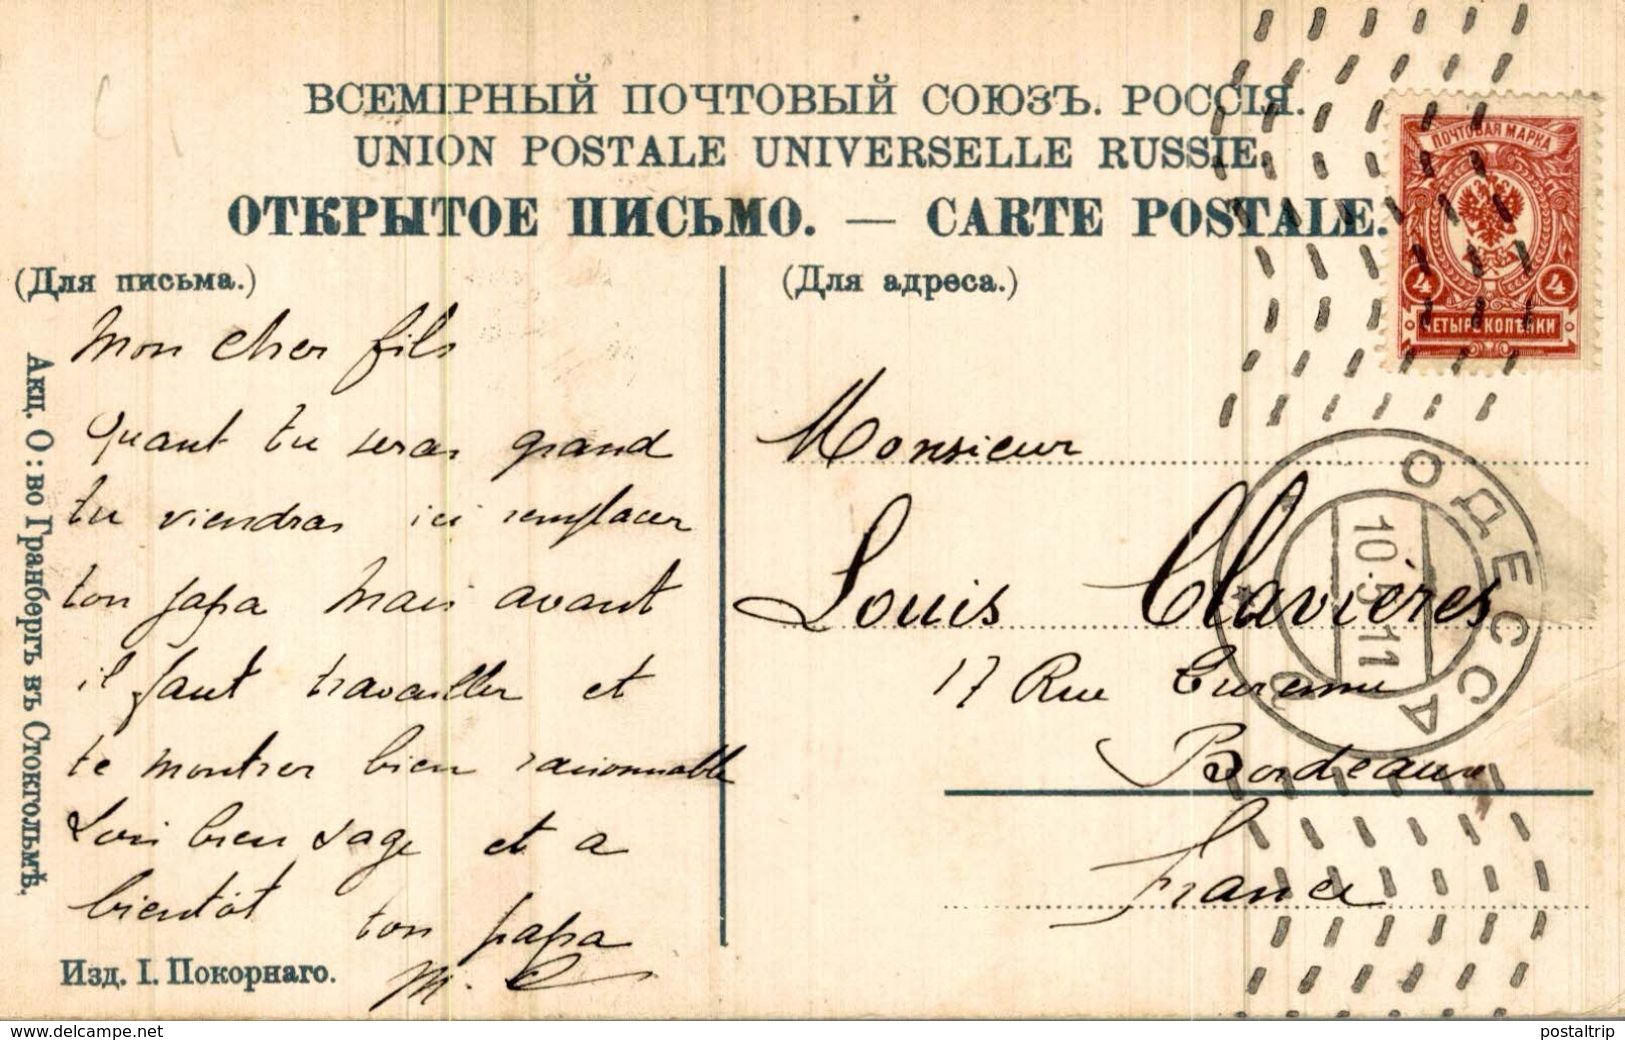 ВСЕМІРНЫЙ ПОЧТОВЫЙ СОЮЗЪ. РОССІЯ.
UNION POSTALE UNIVERSELLE RUSSIE.
ОТКРЫТОЕ ПИСЬМО. — CARTE POSTALE.
ПОЧТОВАЯ МАРКА
4 4
ЧЕТЫРЕ КОПѢЙКИ
(Для письма.)
(Для адреса.)
Mon cher fils
Quant tu seras grand
tu viendras ici remplacer
ton papa Mais avant
il faut travailler et
te montrer bien raisonnable
Sois bien sage et a
bientôt ton papa
M. C
Monsieur
Louis Clavières
17 Rue Turenne
Bordeaux
France
ОДЕССА
10.5.11
Акц. О:во Гранбергъ въ Стокгольмѣ.
Изд. І. Покорнаго.
www.delcampe.net
postaltrip